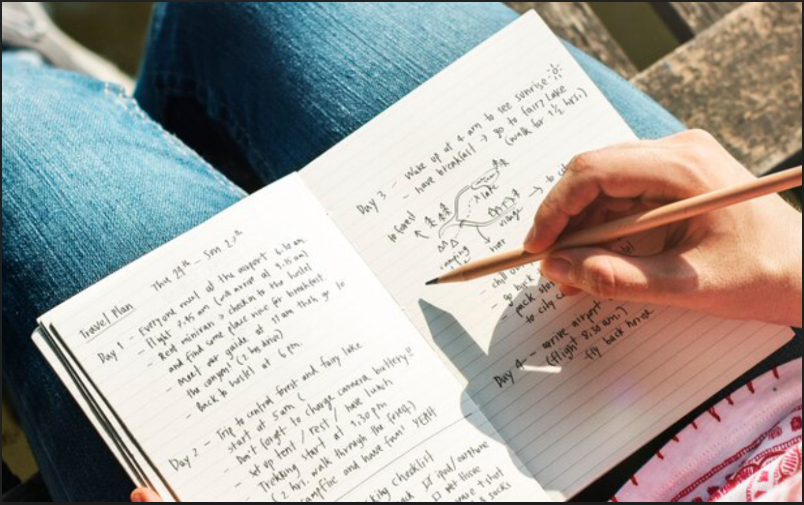 Travel Plan Thu 24th - Sun 27th
Day 1 - Everyone meet at the airport 6.10 am
- flight 7.45 am (will arrive at 8.45 am)
- Rent minivan → check-in to the hostel
and find some place nice for breakfast
- Meet our guide at 11 am then go to
the canyon! (2 hrs drive)
- Back to hostel at 6 pm.
Day 2 - Trip to central forest and fairy lake
start at 5 am (
- Don't forget to charge camera battery!!
- set up tent / rest / have lunch
- Trekking start at 1.30 pm
(2 hrs. walk through the forest)
- campfire and have fun! YEAH
checklist
Day 3 - Wake up at 4 am to see sunrise
- have breakfast → go to fairy lake
(walk for 1½ hrs.)
to forest
lake
→ to ci
village
camping
- chill
- go back
- pack
to city
Day 4 - arrive airport
(flight 8:30 am.)
fly back home